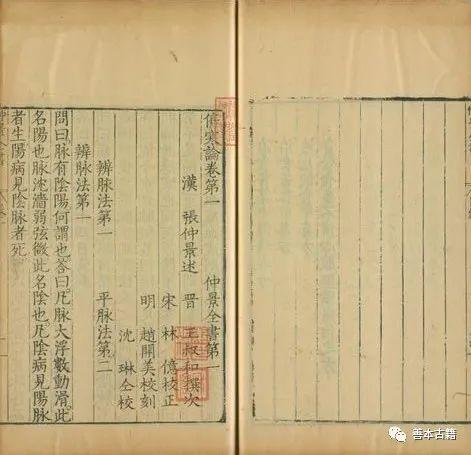 傷寒論卷第一 仲景全書第一
漢 張仲景述 晉 王叔和撰次
宋 林 億校正
明 趙開美校刻
沈 琳仝校
辨脉法第一 平脉法第二
辨脉法第一
問曰脉有陰陽何謂也答曰凡脉大浮數動滑此
名陽也脉沈濇弱弦微此名陰也凡陰病見陽脉
者生陽病見陰脉者死
善本古籍